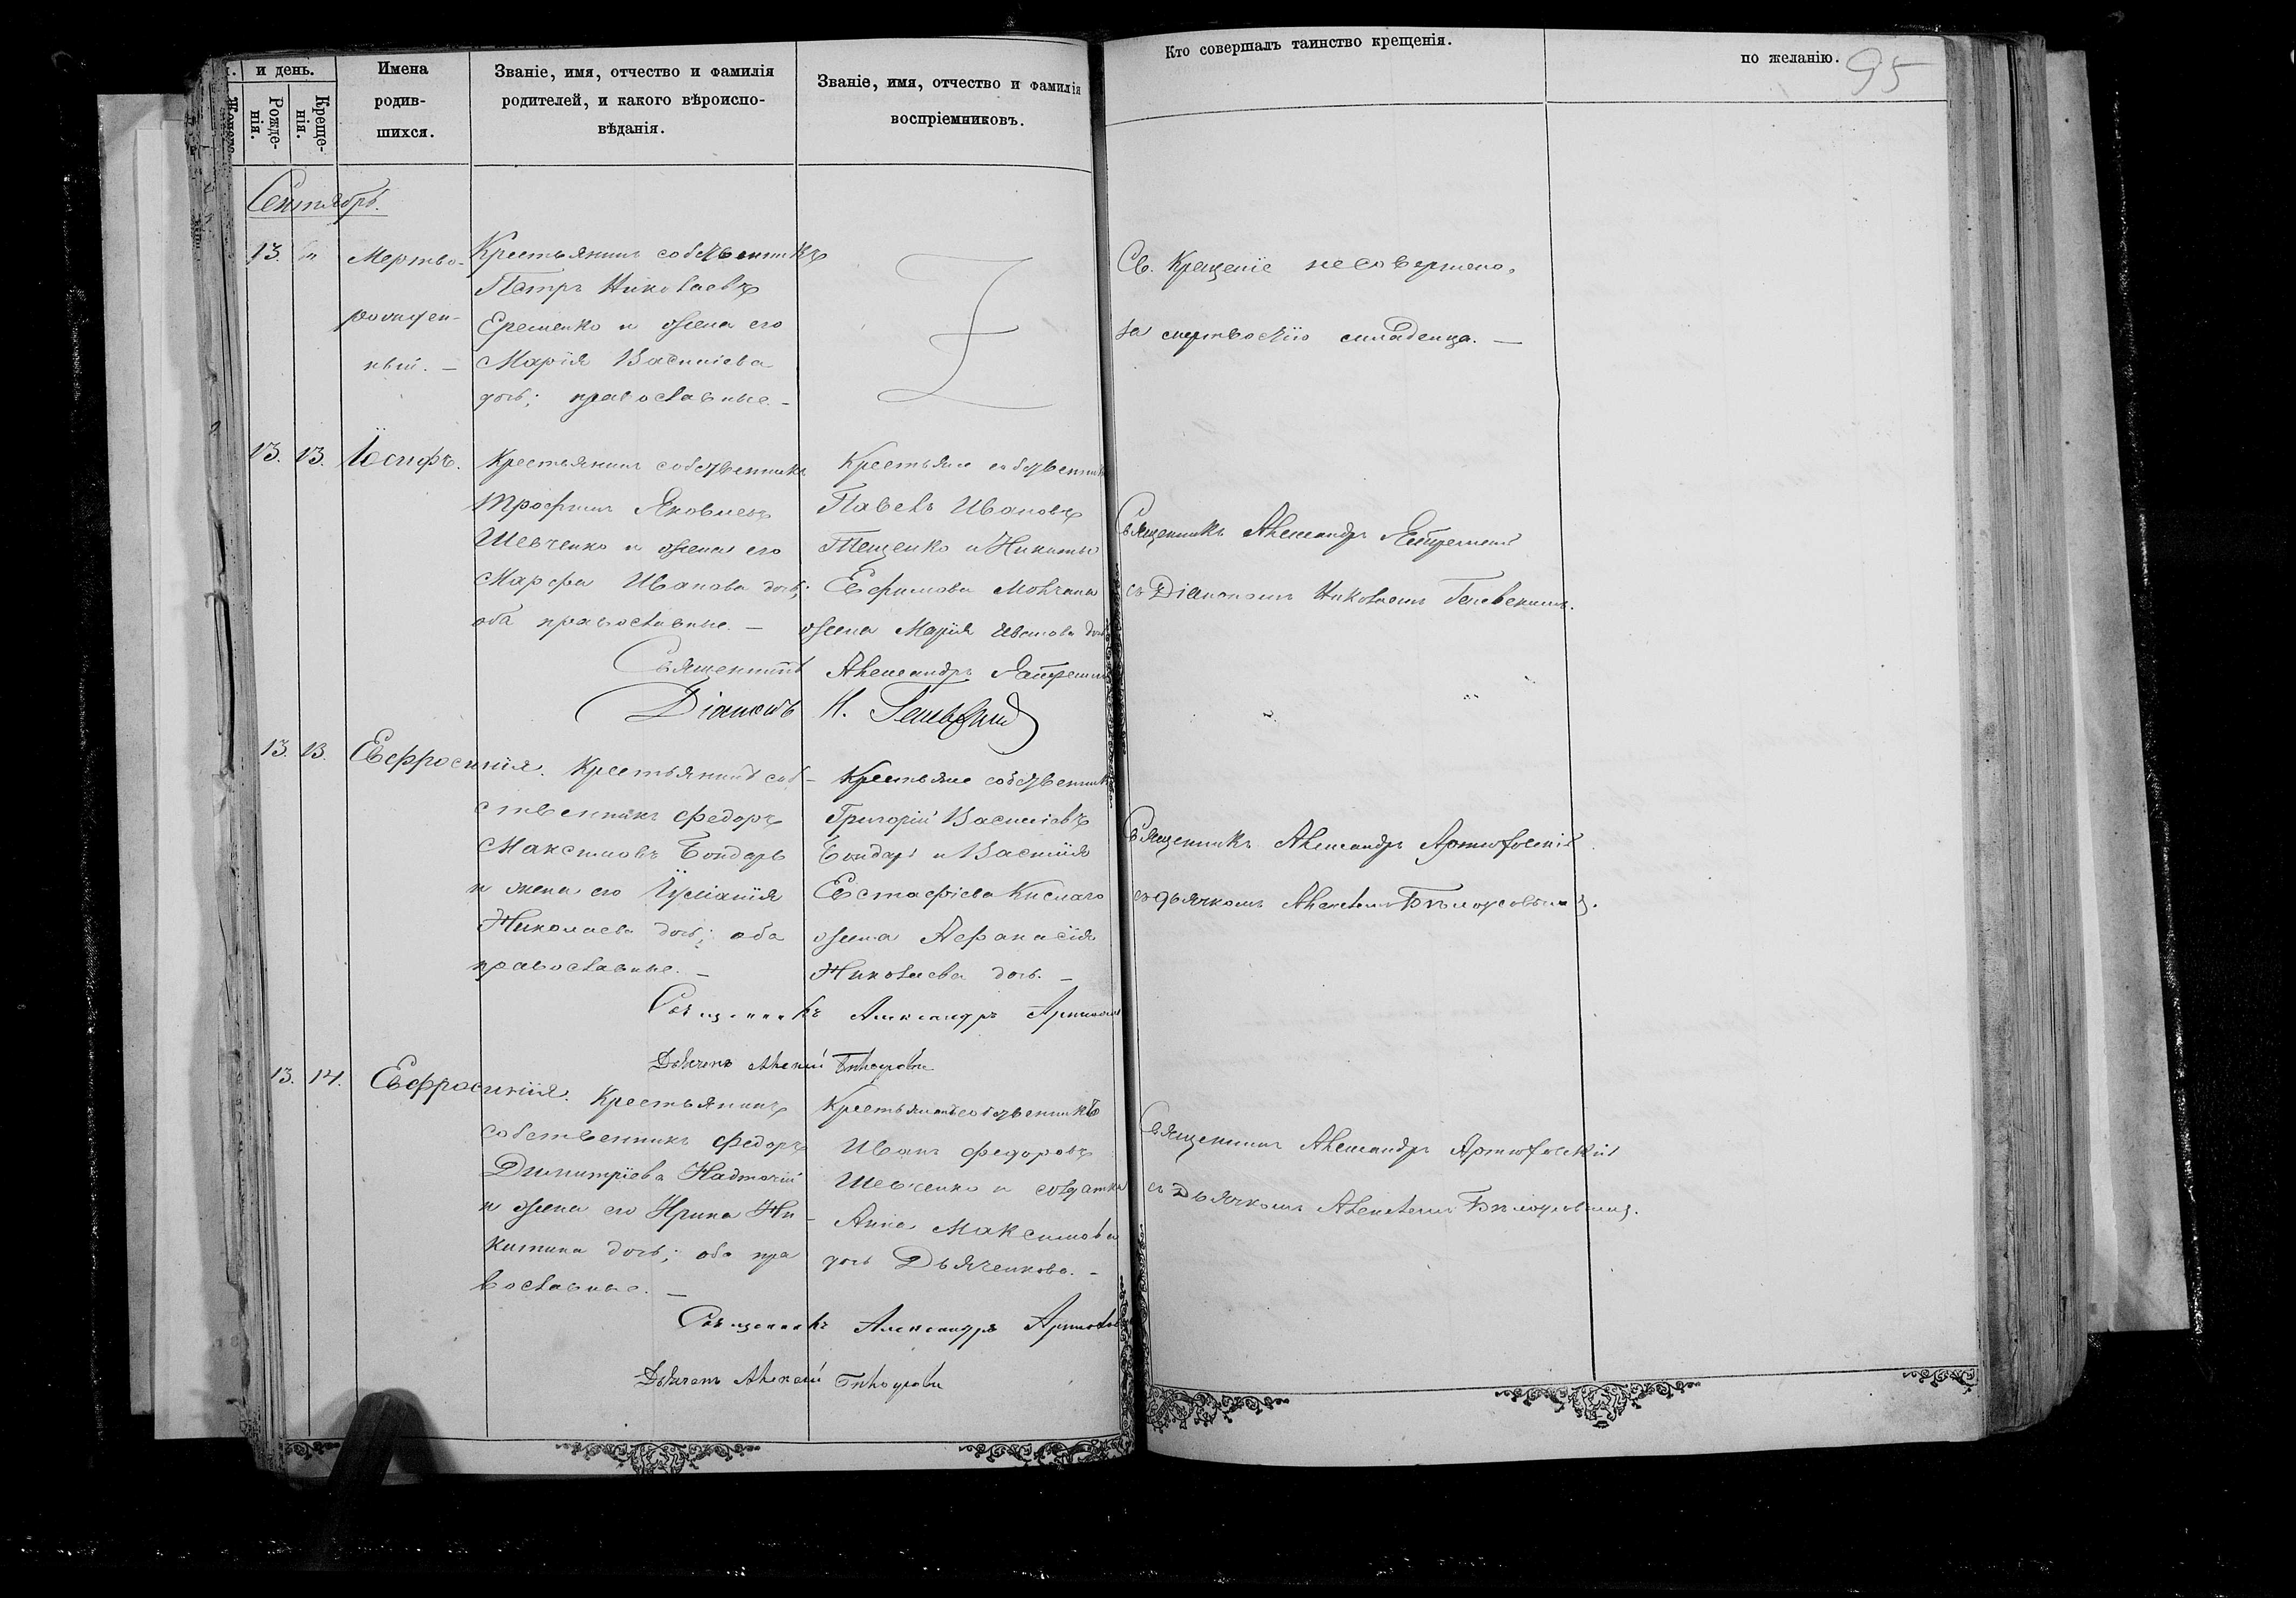 и день.
Рожде-
нія.
Креще-
нія.
Имена
родив-
шихся.
Званіе, имя, отчество и фамилія
родителей, и какого вѣроиспо-
вѣданія.
Званіе, имя, отчество и фамилія
воспріемниковъ.
Кто совершалъ таинство крещенія.
по желанію.
95
Сентябрь.
13.
Мертво-
рожден-
ный. —
Крестьянинъ собственникъ
Петръ Николаевъ
Еременко и жена его
Марія Василіева
дочь; православные. —
Св. Крещеніе не совершено,
за мертвостію младенца. —
13. 13. Іосифъ.
Крестьянинъ собственникъ
Трофимъ Яковлевъ
Шевченко и жена его
Марфа Иванова дочь;
оба православные. —
Крестьяне собственники
Павелъ Ивановъ
Тещенко и Никиты
Ефимова Молчана
жена Марія Иванова дочь
Священникъ Александръ
съ Діакономъ Николаемъ
Священникъ Александръ
Діаконъ Н.
13. 13. Евфросинія.
Крестьянинъ соб-
ственникъ Федоръ
Максимовъ Бондарь
и жена его Іуліанія
Николаева дочь; оба
православные. —
Крестьяне собственники
Григорій Василіевъ
Бондарь и Василія
Евстафіева Кислаго
жена Афанасія
Николаева дочь. —
Священникъ Александръ
съ дьячкомъ Алексѣемъ Бѣлоусовымъ.
Священникъ Александръ
Дьячекъ Алексѣй Бѣлоусовъ
13. 14. Евфросинія.
Крестьянинъ
собственникъ Федоръ
Димитріевъ Надточій
и жена его Ирина Ни-
китина дочь; оба пра
вославные. —
Крестьянинъ собственникъ
Иванъ Федоровъ
Шевченко и солдатка
Анна Максимова
дочь Дьяченкова. —
Священникъ Александръ
съ Дьячкомъ Алексѣемъ Бѣлоусовымъ.
Священникъ Александръ
Дьячекъ Алексѣй Бѣлоусовъ